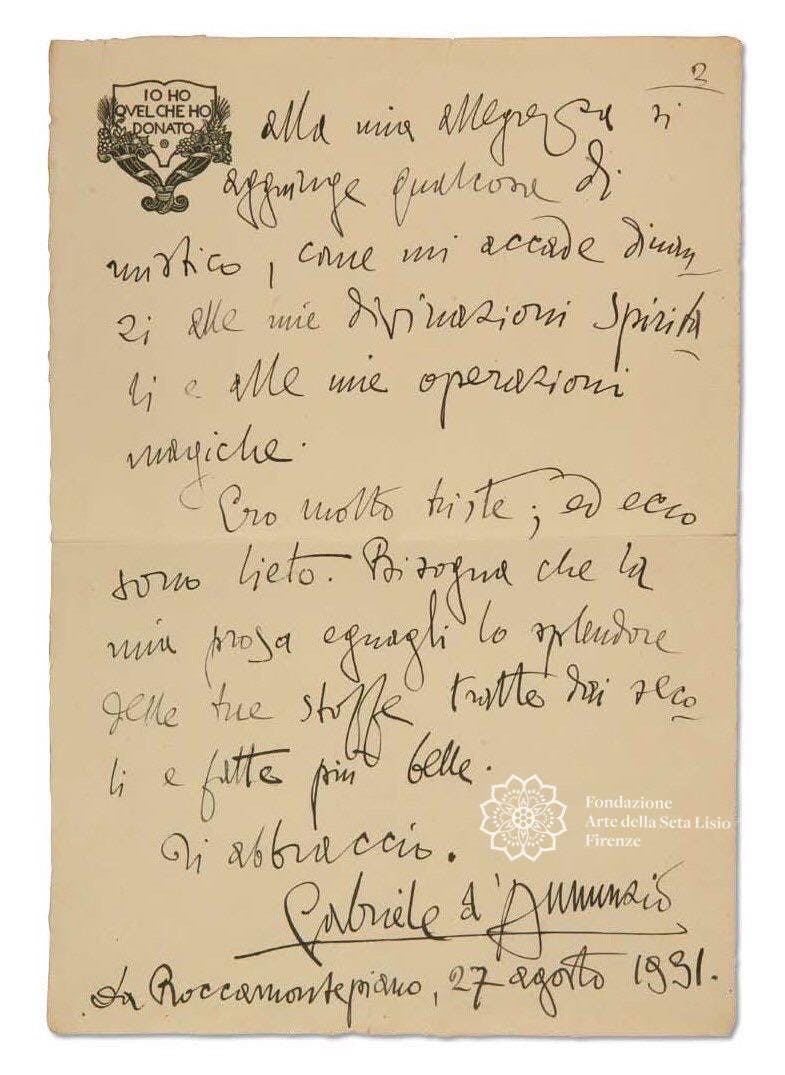 2
IO HO
QVEL CHE HO
DONATO
alla mia allegrezza si
aggiunge qualcosa di
mistico, come mi accade dinan
zi alle mie divinazioni spirita
li e alle mie operazioni
magiche.
Ero molto triste; ed ecco
sono lieto. Bisogna che la
mia prosa eguagli lo splendore
delle tue stoffe tratte dai seco
li e fatte più belle.
Ti abbraccio.
Gabriele d'Annunzio
Da Roccamontepiano, 27 agosto 1931.
Fondazione
Arte della Seta Lisio
Firenze